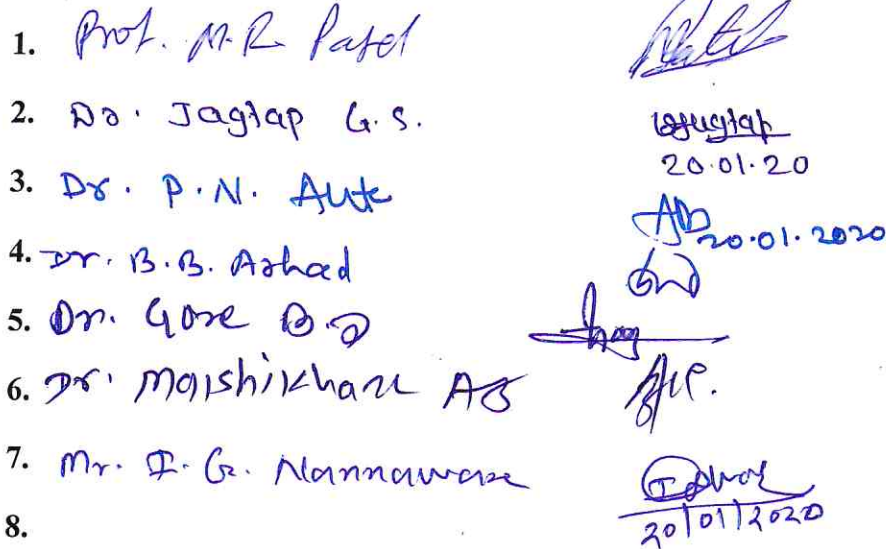 1. Prof. M.R. Patel
2. Dr. Jagtap G.S.
20.01.20
3. Dr. P.N. Aute
20.01.2020
4. Dr. B.B. Ashad
5. Dr. Gore B.D
6. Dr. Maishikhare AB
7. Mr. I. G. Nannaware
20/01/2020
8.